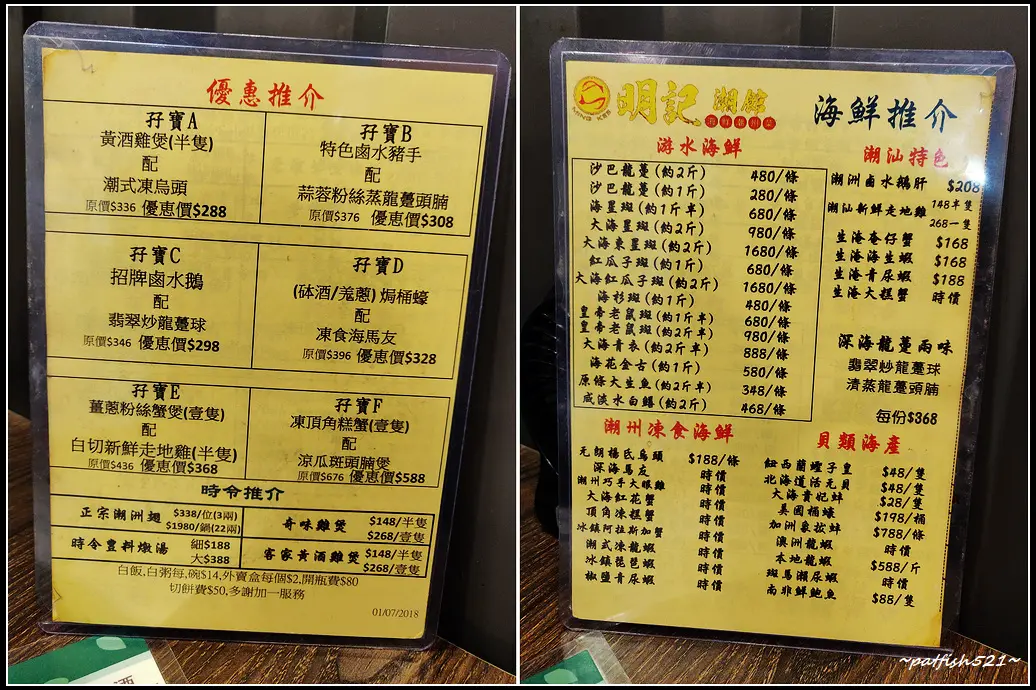 優惠推介
孖寶A
黃酒雞煲(半隻)
配
潮式凍烏頭
原價$336 優惠價$288
孖寶B
特色鹵水豬手
配
蒜蓉粉絲蒸龍躉頭腩
原價$376 優恵價$308
孖寶C
招牌鹵水鵝
配
翡翠炒龍躉球
原價$346 優惠價$298
孖寶D
(砵酒/羗蔥)焗桶蠔
配
凍食海馬友
原價$396 優惠價$328
孖寶E
薑蔥粉絲蟹煲(壹隻)
配
白切新鮮走地雞(半隻)
原價$436 優惠價$368
孖寶F
凍頂角糕蟹(壹隻)
配
涼瓜斑頭腩煲
原價$676 優惠價$588
時令推介
正宗潮洲翅 $338/位(3兩)
$1980/鍋(22兩)
奇味雞煲 $148/半隻
$268/壹隻
時令豐料燉湯 細$188
大$388
客家黃酒雞煲 $148/半隻
$268/壹隻
白飯,白粥每,碗$14,外賣盒每個$2,開瓶費$80
切餅費$50,多謝加一服務
01/07/2018
明記潮館
海鮮推介
游水海鮮
沙巴龍躉(約2斤) 480/條
沙巴龍躉(約1斤) 280/條
海星斑(約1斤半) 680/條
大海星斑(約2斤) 980/條
大海東星斑(約2斤) 1680/條
紅瓜子斑(約1斤) 680/條
大海紅瓜子斑(約2斤) 1680/條
海杉斑(約1斤) 480/條
皇帝老鼠斑(約1斤半) 680/條
皇帝老鼠斑(約2斤半) 980/條
大海青衣(約2斤) 888/條
海花金古(約1斤) 580/條
原條大生魚(約2斤半) 348/條
咸淡水白鱔(約2斤) 468/條
潮汕特色
潮洲鹵水鵝肝 $208
潮汕新鮮走地雞 148半隻
268一隻
生淹奄仔蟹 $168
生淹海生蝦 $168
生淹青尿蝦 $188
生淹大糕蟹 時價
深海龍躉兩味
翡翠炒龍躉球
清蒸龍躉頭腩
每份$368
潮州凍食海鮮
元朗楊氏烏頭 $188/條
深海馬友 時價
潮州巧手大眼雞 時價
大海紅花蟹 時價
頂角凍糕蟹 時價
冰鎮阿拉斯加蟹 時價
潮式凍龍蝦 時價
冰鎮琵琶蝦 時價
椒鹽青尿蝦 時價
貝類海產
紐西蘭蟶子皇 $48/隻
北海道活元貝 $48/隻
大海貴妃蚌 $28/隻
美國桶蠔 $198/桶
加洲象拔蚌 $788/條
澳洲龍蝦 時價
本地龍蝦 $588/斤
斑馬瀨尿蝦 時價
南非鮮鮑魚 $88/隻
~patfish521~